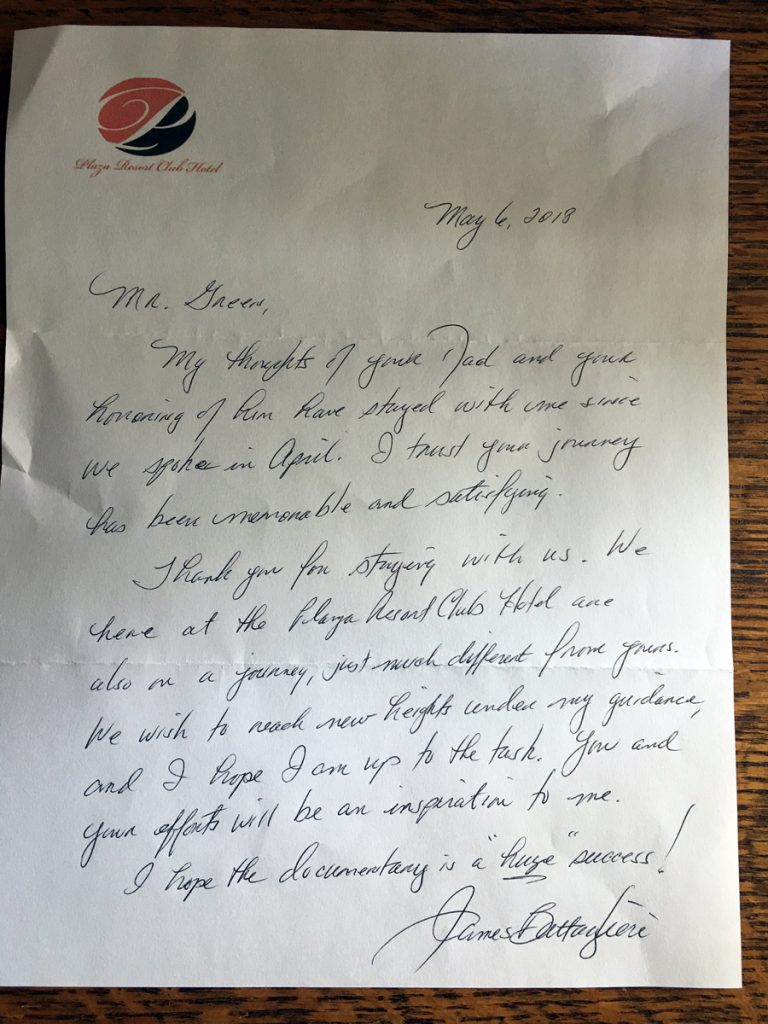 Plaza Resort Club Hotel
May 6, 2018
Mr. Green,
My thoughts of your Dad and your
honoring of him have stayed with me since
we spoke in April. I trust your journey
has been memorable and satisfying.
Thank you for staying with us. We
here at the Plaza Resort Club Hotel are
also on a journey, just much different from yours.
We wish to reach new heights under my guidance,
and I hope I am up to the task. You and
your efforts will be an inspiration to me.
I hope the documentary is a "huge" success!
James Battaglieri